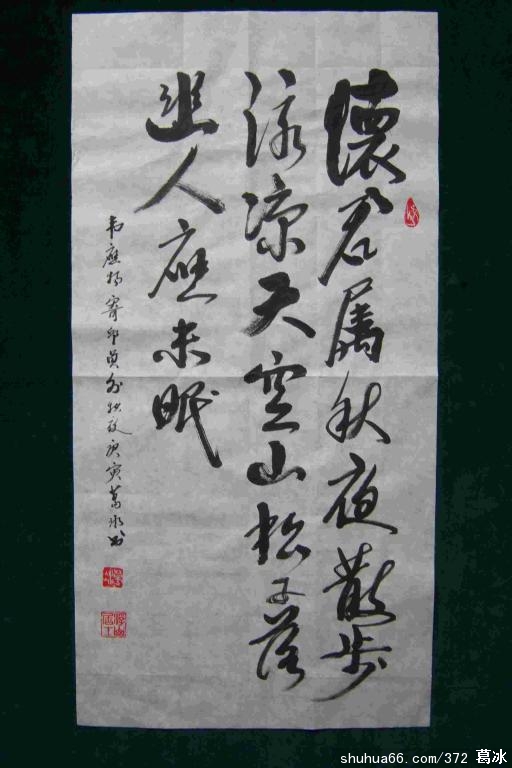 懷君属秋夜散步
詠凉天空山松子落
幽人應未眠
韦應物寄邱員外 庚寅葛冰书
shuhua66.com/372 葛冰